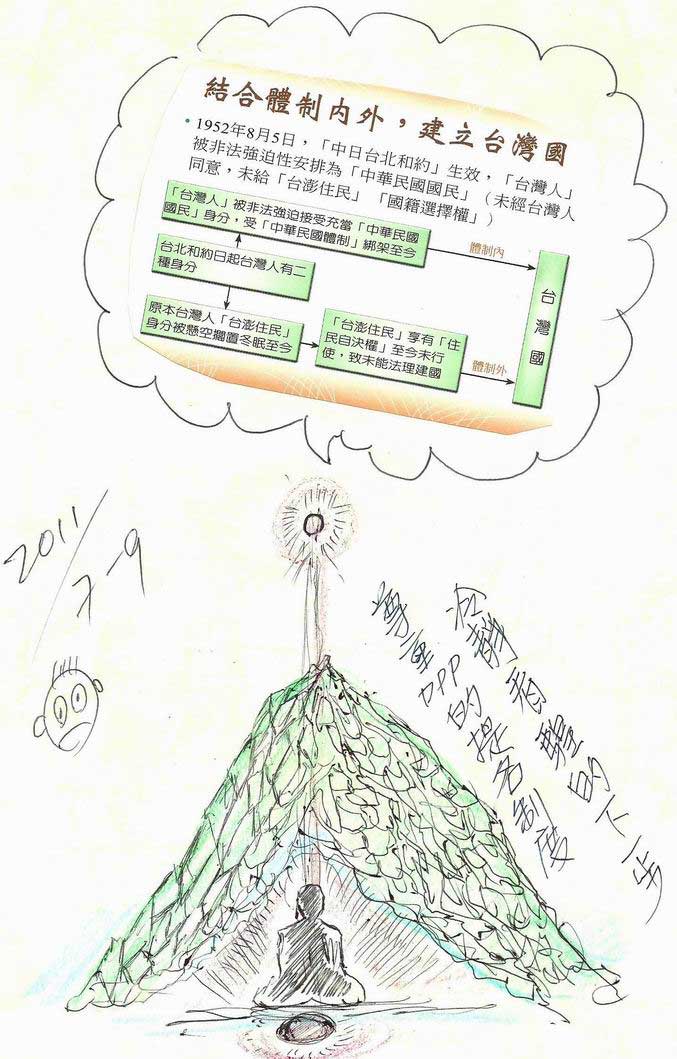 結合體制內外，建立台灣國
• 1952年8月5日，「中日台北和約」生效，「台灣人」
被非法強迫性安排為「中華民國國民」（未經台灣人
同意，未給「台澎住民」「國籍選擇權」）
「台灣人」被非法強迫接受充當「中華民國
國民」身分，受「中華民國體制」綁架至今
體制內
台北和約日起台灣人有二
種身分
台灣國
原本台灣人「台澎住民」
身分被懸空擱置冬眠至今
「台澎住民」享有「住
民自決權」至今未行
使，致未能法理建國
體制外
2011
7-9
冷靜看聖的下一步
尊重DPP的提名制度